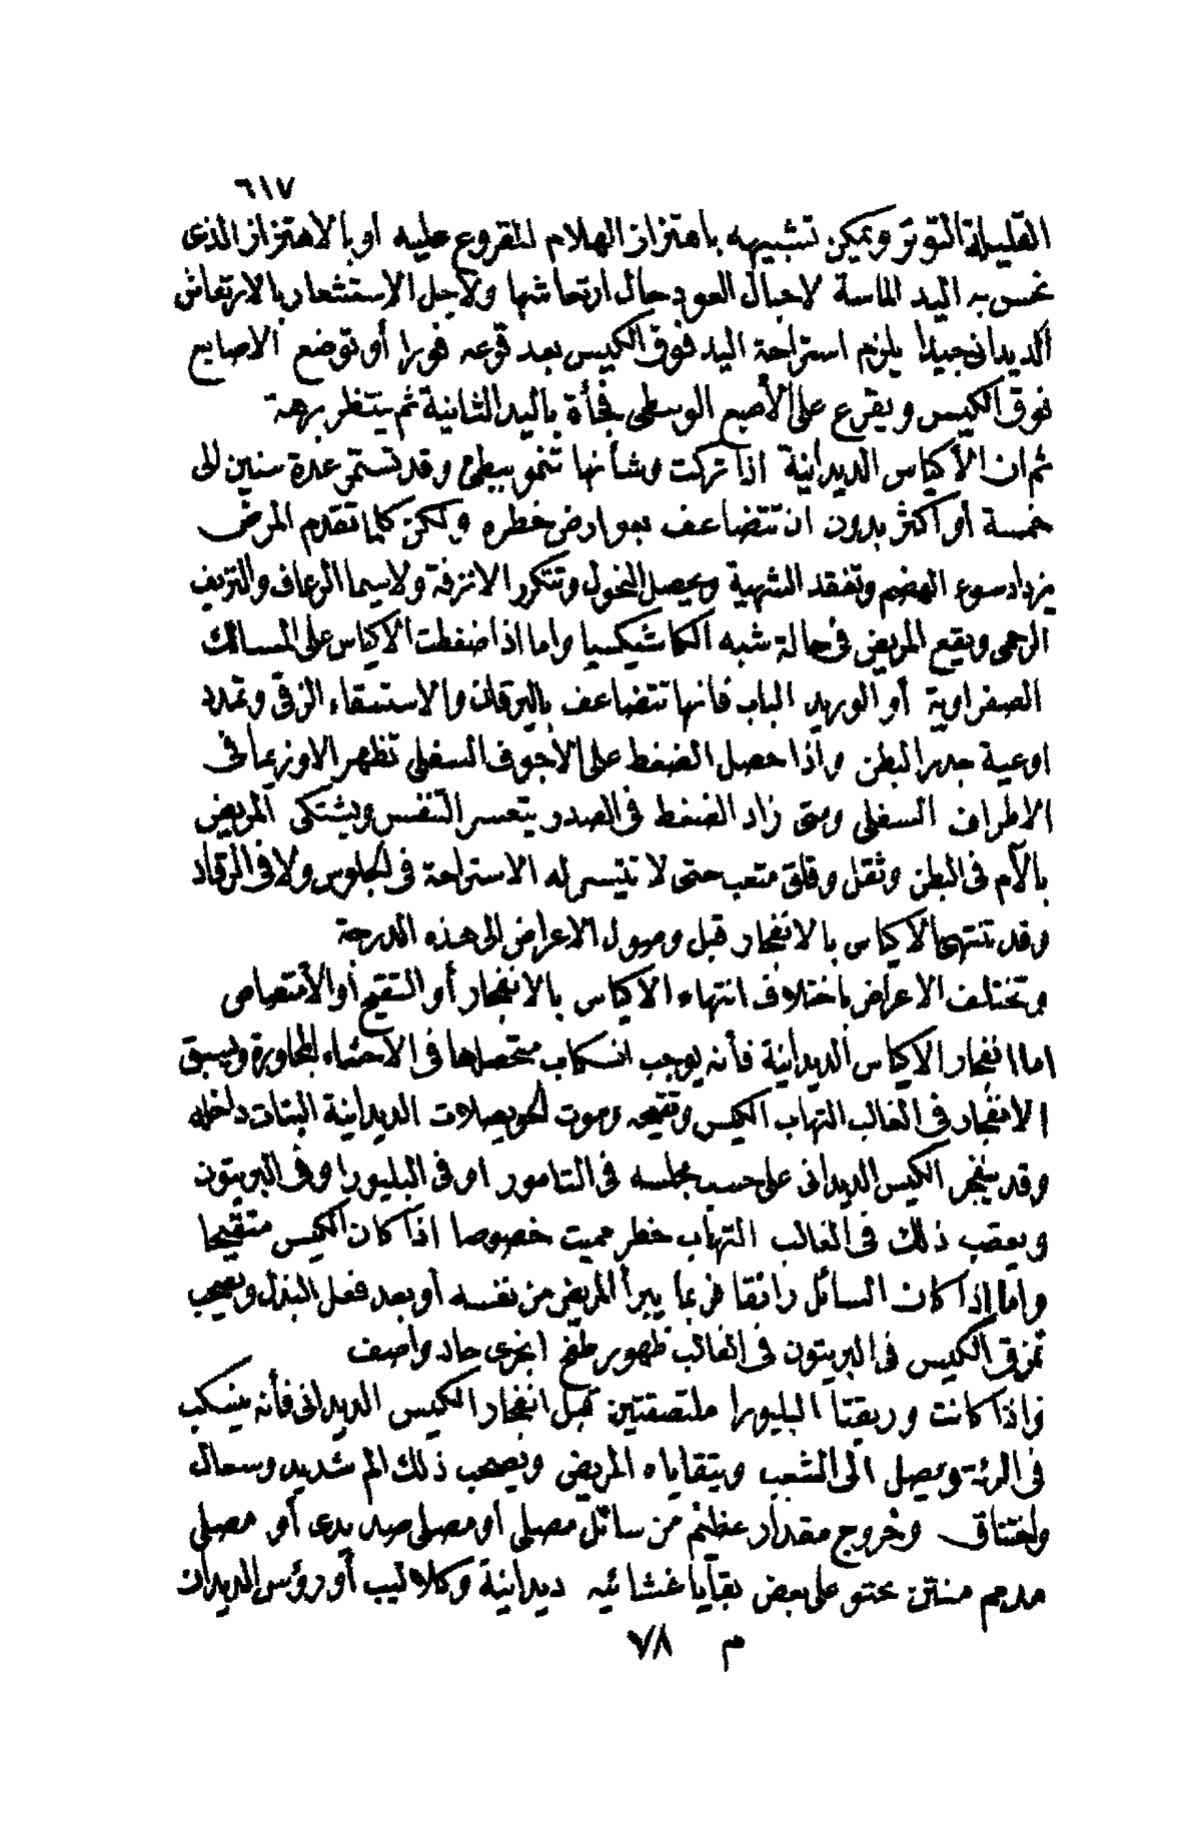 ٦١٧
القليلة التوتر ويمكن تشبيهه باهتزاز الهلام المقروع عليه أو بالاهتزاز الذى
تحس به اليد الماسة لاحبال العود حال ارتعاشها ولاجل الاستشعار بالارتعاش
الديدانى جيدا يلزم استراحة اليد فوق الكيس بعد قرعه فورا أو توضع الاصابع
فوق الكيس ويقرع على الأصبع الوسطى فجأة باليد الثانية ثم ينتظر برهة
ثم ان الأكياس الديدانية اذا تركت وشأنها تنمو ببطئ وقد تستمر عدة سنين الى
خمسة أو أكثر بدون ان تتضاعف بعوارض خطره ولكن كلما تقدم المرض
يزداد سوء الهضم وتفقد الشهية ويحصل النحول وتتكرر الانزفة ولاسيما الرعاف والنزيف
الرحمى ويقع المريض فى حالة شبه الكاشيكسيا واما اذا ضغطت الاكياس على المسالك
الصفراوية أو الوريد الباب فانها تتضاعف باليرقان والاستسقاء الزقى وتمدد
اوعية جدر البطن واذا حصل الضغط على الأجوف السفلى تظهر الاوزيما فى
الاطراف السفلى ومتى زاد الضغط فى الصدر يتعسر التنفس ويشتكى المريض
بالآم فى البطن وثقل وقلق متعب حتى لا تتيسر له الاستراحة فى الجلوس ولا فى الرقاد
وقد تنتهى الاكياس بالانفجار قبل وصول الاعراض الى هذه الدرجة
وتختلف الاعراض باختلاف انتهاء الاكياس بالانفجار أو التقيح أو الأمتصاص
اما انفجار الاكياس الديدانية فأنه يوجب انسكاب متحصلها فى الاحشاء المجاورة ويسبق
الانفجار فى الغالب التهاب الكيس وتقيحه وموت الحويصلات الديدانية البنات داخله
وقد ينفجر الكيس الديدانى على حسب مجلسه فى التامور او فى البليورا او فى البريتون
ويعقب ذلك فى الغالب التهاب خطر مميت خصوصا اذا كان الكيس متقيحا
واما اذا كان السائل رائقا فربما يبرأ المريض من نفسه أو بعد فعل البذل ويصحب
تمزق الكيس فى البريتون فى الغالب ظهور طفح انجرى حاد واصف
واذا كانت وريقتا البليورا ملتصقتين قبل انفجار الكيس الديدانى فأنه ينسكب
فى الرئة ويصل الى الشعب ويتقاياه المريض ويصحب ذلك الم شديد وسعال
واختناق وخروج مقدار عظيم من سائل مصلى أو مصلى صديدى أو مصلى
مدمم منتن محتو على بعض بقايا غشائيه ديدانية وكلاليب أو رؤس الديدان
م ٧٨